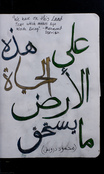 "We have on this Land
that which makes life
worth living"
على
هذه
الأرض
ما
يستحق
الحياة
(محمود درويش)